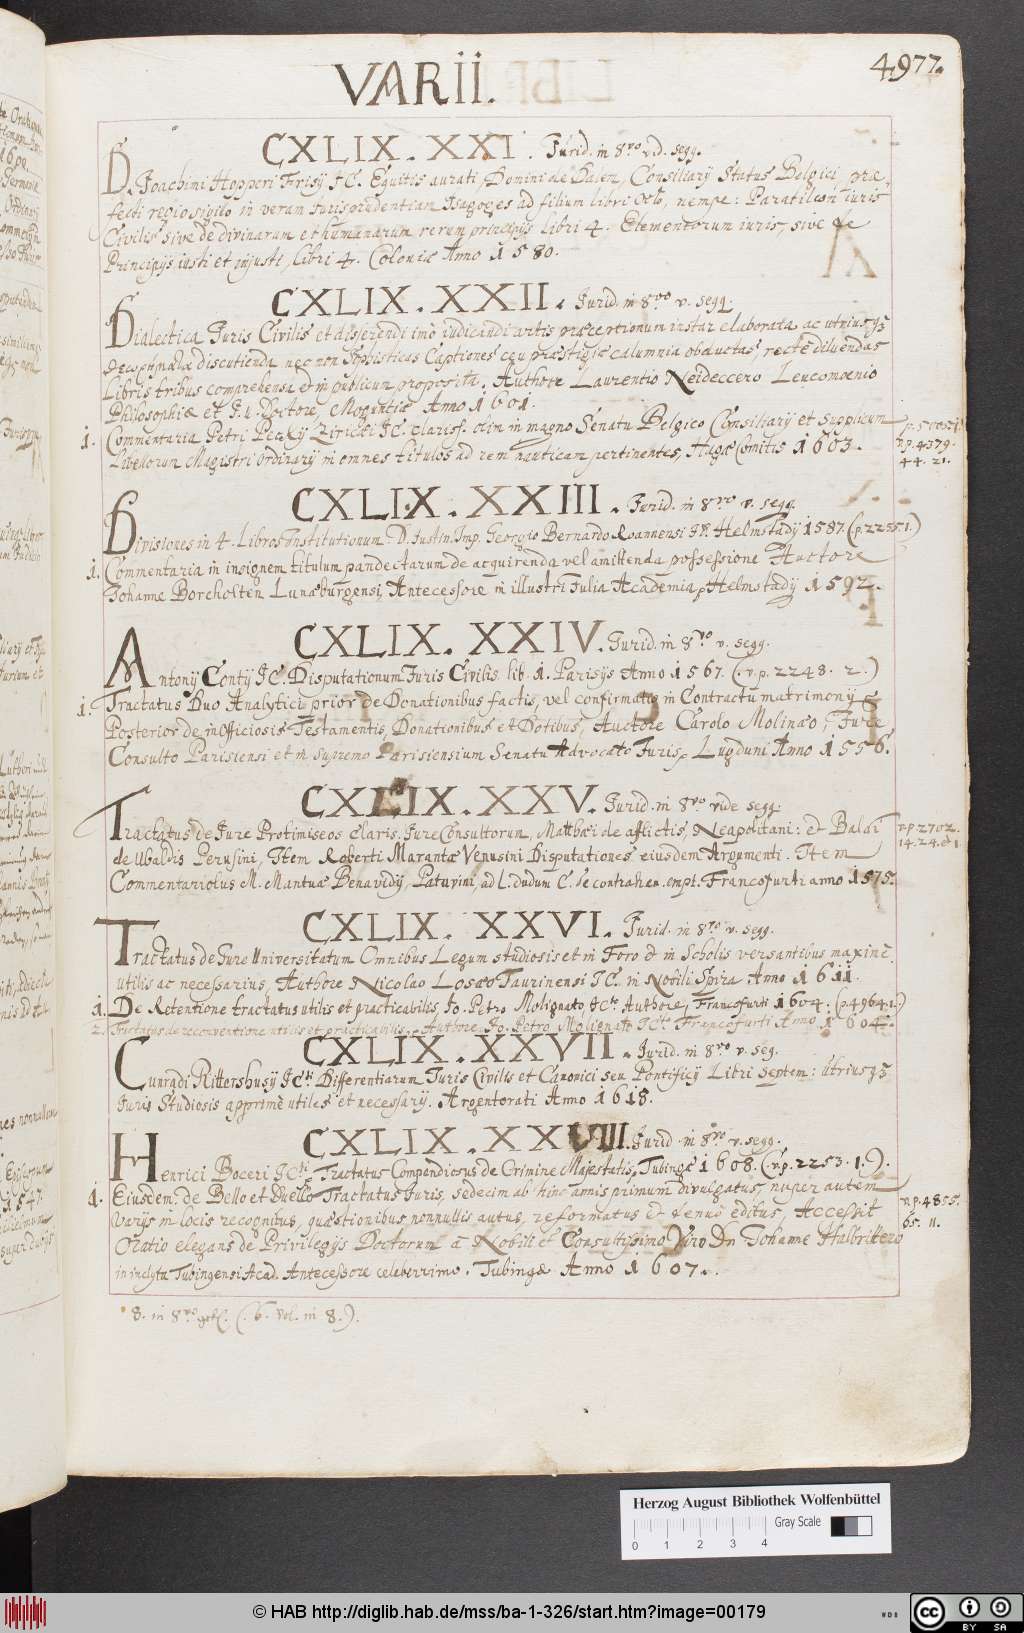 VARII.
4977.
CXLIX. XXI. Jurid. in 8vo vid. segg.
D. Joachimi Hopperi Frisij JC. Equitis aurati, Domini de Dalem, Consiliarij Status Belgici, præ-
fecti regio sigilo in veram Jurisprudentiam Isagoges ad filium libri octo, nempe: Paratitlωn iuris
Civilis sive de divinarum et humanarum rerum principijs libri 4. Elementorum iuris, sive de
Principijs iusti et injusti, libri 4. Coloniæ Anno 1580.
CXLIX. XXII. Jurid. in 8vo v. segg.
Dialectica Juris Civilis et disserendi imò iudicandi artis præceptionum instar elaborata ac utriusq3
discutienda, nec non Sophisticas Captiones ceu præstigiæ calumnia obductas, rectè diluendas
Libris tribus comprehensa et in publicum proposita. Authore Laurentio Neideccero Leucomoenio
Philosophiæ et J.U. Doctore, Moguntiæ Anno 1601.
1. Commentaria Petri Peckij Ziricæi JC. clariss. olim in magno Senatu Belgico Consiliarij et Supplicum
Libellorum Magistri ordinarij in omnes titulos ad rem nauticam pertinentes, Hagæ Comitis 1603.
v.p. 4379.
44. 21.
CXLIX. XXIII. Jurid. in 8vo v. segg.
Divisiones in 4. Libros Institutionum D. Justin. Imp. Georgio Bernardo Roannensi Helmstadij 1587. (p. 2255 1.)
1. Commentaria in insignem titulum pandectarum de acquirenda vel amittenda possessione Auctore
Johanne Borcholten Lunæburgensi, Antecessore in illustri Julia Academia, Helmstadij 1592.
CXLIX. XXIV. Jurid. in 8vo v. segg.
Antonij Contij JC. Disputationum Juris Civilis lib. 1. Parisijs Anno 1567. (v.p. 2248. 2.)
1. Tractatus Duo Analytici, prior de Donationibus factis, vel confirmatis in Contractu matrimonij
Posterior de inofficiosis Testamentis, Donationibus et Dotibus, Auctore Carolo Molinæo, Jure
Consulto Parisiensi et in supremo Parisiensium Senatu Advocato Juris, Lugduni Anno 1556.
CXLIX. XXV. Jurid. in 8vo vide segg.
Tractatus de Jure Protimiseos claris. Jure Consultorum, Matthæi de afflictis, Neapolitani: et Baldi
de Ubaldis Perusini, Item Roberti Marantæ Venusini Disputationes, eiusdem Argumenti. Item
Commentariolus M. Mantuæ Benavidij, Patavini, ad L. dudum C. de contrahen. empt. Francofurti anno 1575.
v.p. 2702.
14. 24. et 1.
CXLIX. XXVI. Jurid. in 8vo v. segg.
Tractatus de Jure Universitatum Omnibus Legum studiosis et in Foro & in Scholis versantibus maximè
utilis ac necessarius, Authore Nicolao Losæo Taurinensi JC. in Nobili Spira Anno 1611.
1. De Retentione tractatus utilis et practicabilis, Jo. Petro Molignato, JCto Authore, Francofurti 1604. (p. 4964. 1.)
2. Tractatus de reconventione utilis et practicabilis, Authore Jo. Petro Molignato JCto Francofurti Anno 1604.
CXLIX. XXVII. Jurid. in 8vo v. seg.
Cunradi Rittershusij JCti Differentiarum Juris Civilis et Canonici seu Pontificij Libri Septem: utriusq3
Juris Studiosis apprimè utiles et necessarij. Argentorati Anno 1618.
CXLIX. XXVIII. Jurid. in 8vo v. segg.
Henrici Boceri JCti Tractatus Compendiosus de Crimine Majestatis, Tubingæ 1608. (v.p. 2253. 1.).
1. Eiusdem de Bello et Duello Tractatus Juris, sedecim ab hinc annis primum divulgatus, nuper autem
varijs in locis recognitus, quæstionibus nonnullis auctus, reformatus & denuò editus, Accessit
Oratio elegans de Privilegijs Doctorum à Nobili et Consultissimo Viro Dn Johanne Halbrittero
in inclyta Tubingensi Acad. Antecessore celeberrimo. Tubingæ Anno 1607.
v.p. 4855.
65. 11.
8. in 8vo (. 6. vol. in 8.).
Herzog August Bibliothek Wolfenbüttel
0 1 2 3 4 Gray Scale
© HAB http://diglib.hab.de/mss/ba-1-326/start.htm?image=00179
WDB
cc BY SA